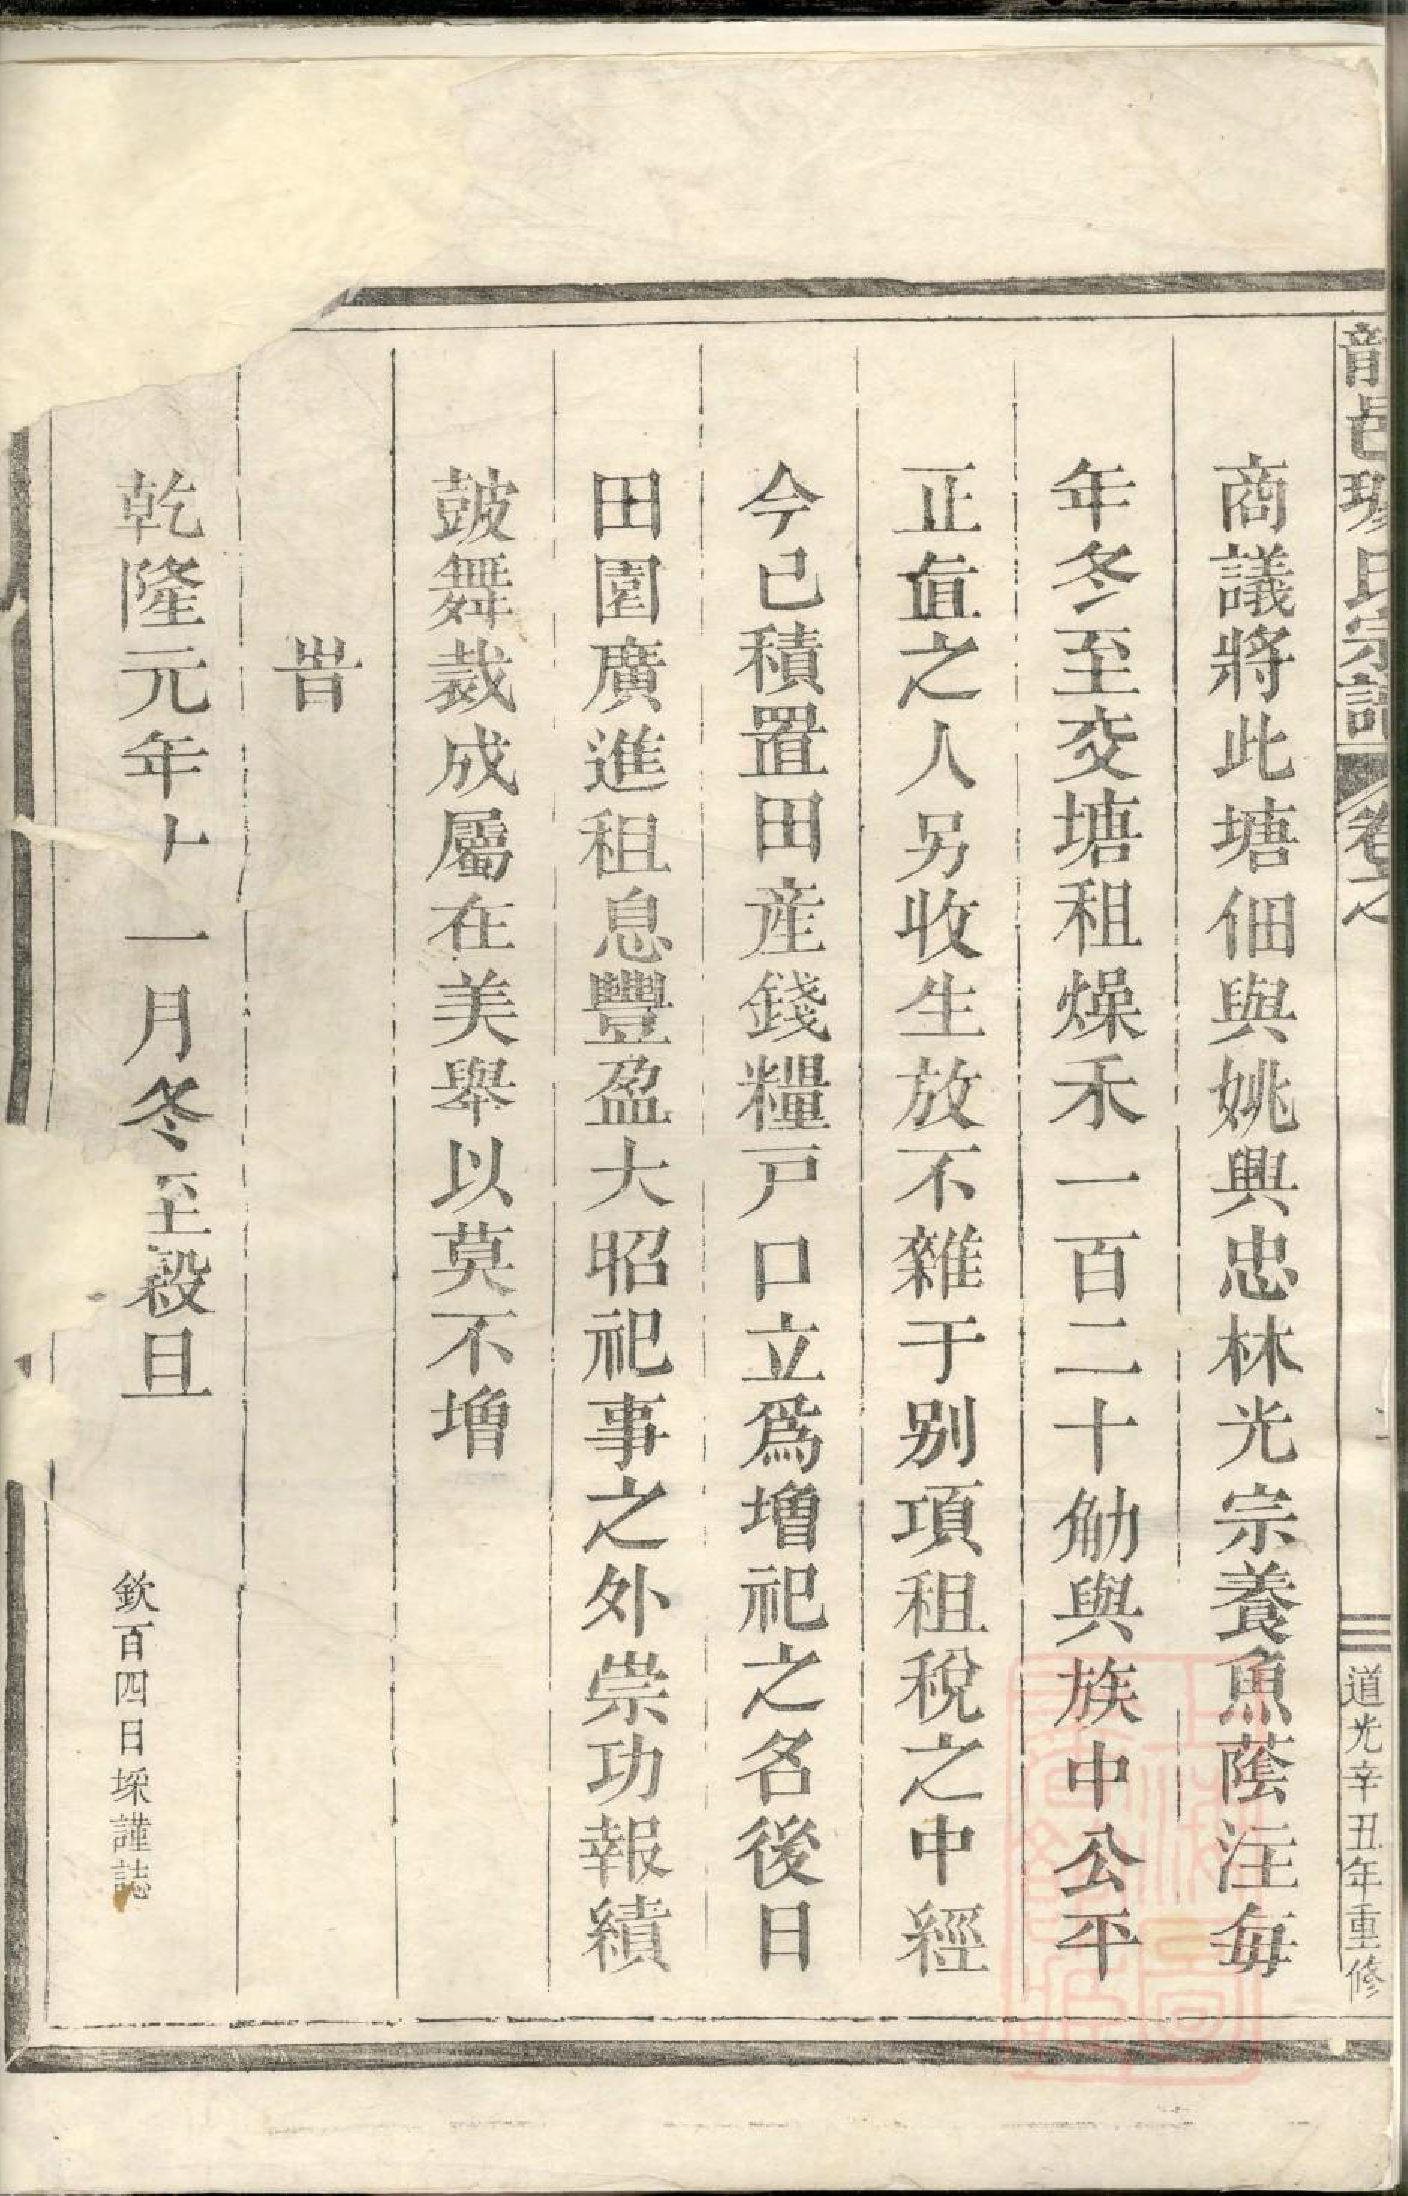 商議將此塘佃與姚興忠林光宗養魚蔭注每
年冬至交塘租燥禾一百二十觔與族中公平
正直之人另收生放不雜于别項租稅之中經
今已積置田産錢糧戸口立爲增祀之名後日
田園廣進租息豐盈大昭祀事之外崇功報績
皷舞裁成屬在美舉以莫不增
旹
乾隆元年十一月冬至穀旦
欽百四日埰謹誌
道光辛丑年重修